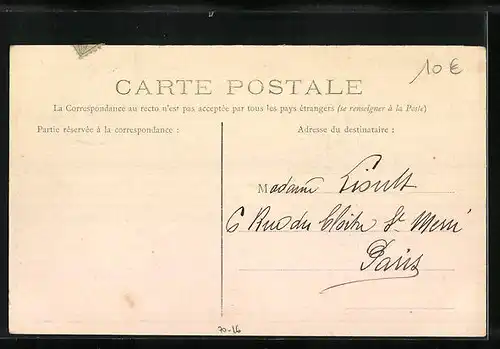 10€
CARTE POSTALE
La Correspondance au recto n'est pas acceptée par tous les pays étrangers (se renseigner à la Poste)
Partie réservée à la correspondance :
Adresse du destinataire :
Madame Lioult
6 Rue du Cloître St Merri
Paris
70-16